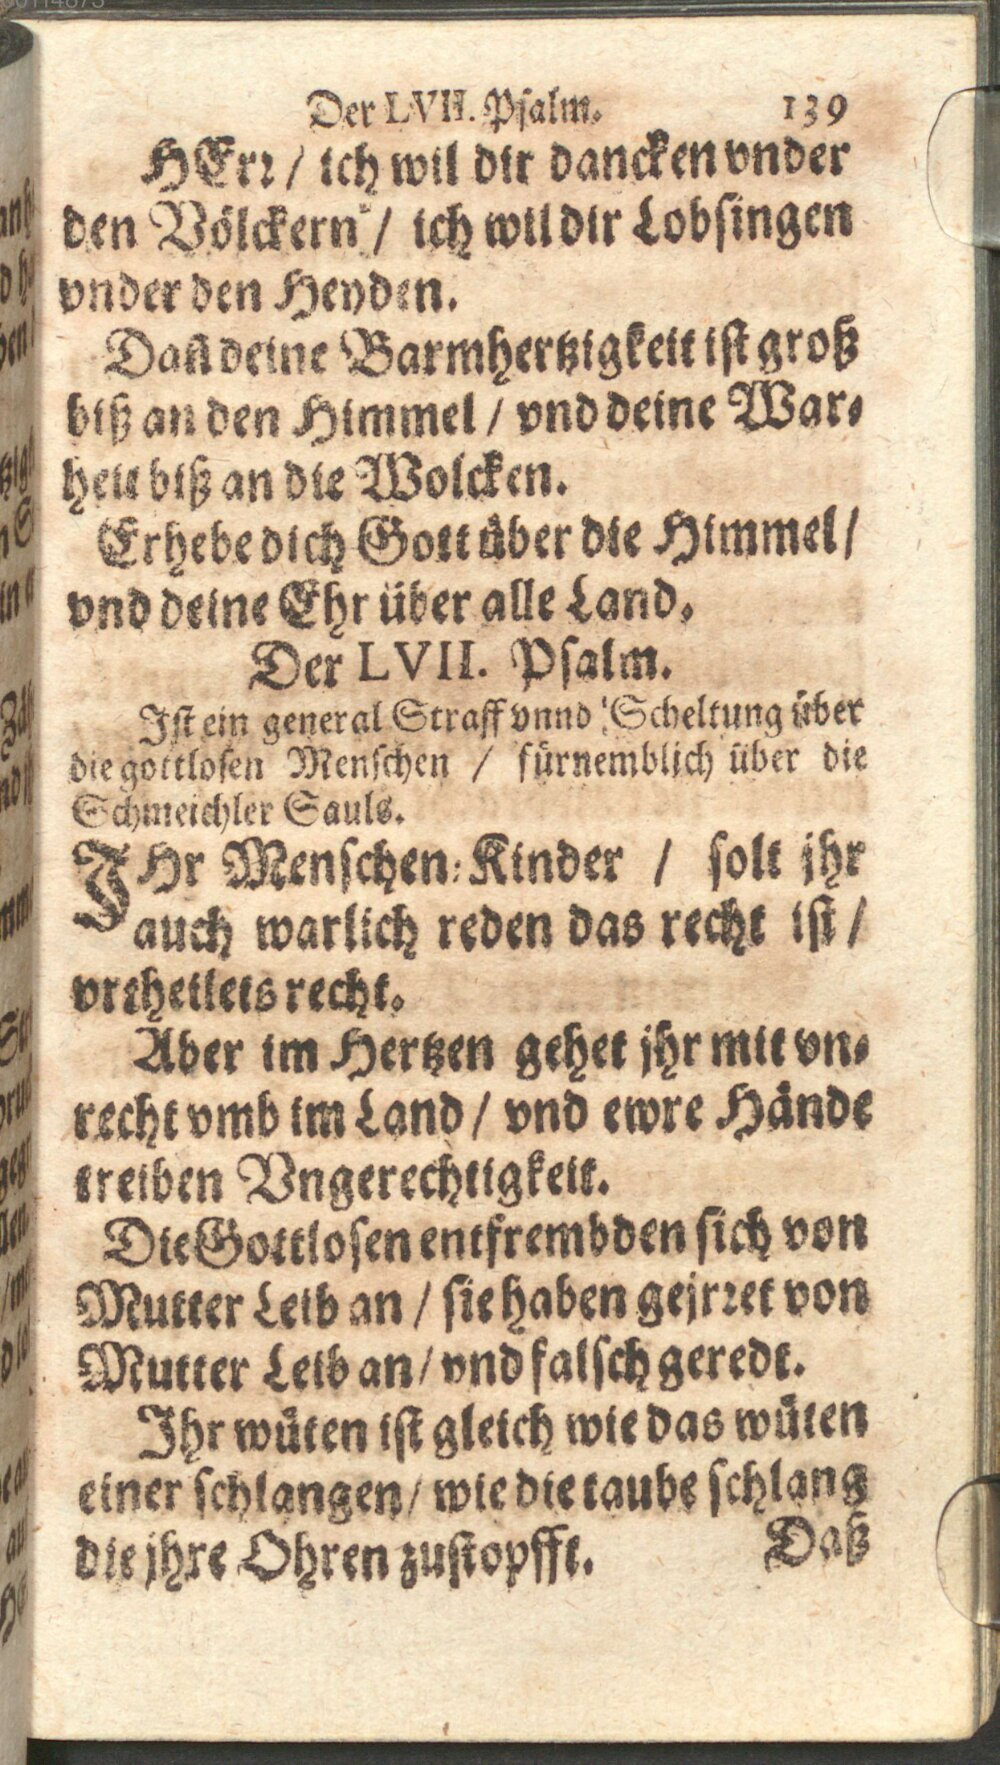 Der LVII. Psalm. 139
HErr / ich wil dir dancken vnder
den Völckern / ich wil dir Lobsingen
vnder den Heyden.
Dañ deine Barmhertzigkeit ist groß
biß an den Himmel / vnd deine War-
heit biß an die Wolcken.
Erhebe dich Gott über die Himmel /
vnd deine Ehr über alle Land.
Der LVII. Psalm.
Ist ein general Straff vnnd Scheltung über
die gottlosen Menschen / fürnemblich über die
Schmeichler Sauls.
IHr Menschen-Kinder / solt jhr
auch warlich reden das recht ist /
vrtheilets recht.
Aber im Hertzen gehet jhr mit vn-
recht vmb im Land / vnd ewre Hände
treiben Vngerechtigkeit.
Die Gottlosen entfrembden sich von
Mutter Leib an / sie haben gejrret von
Mutter Leib an / vnd falsch geredt.
Ihr wüten ist gleich wie das wüten
einer schlangen / wie die taube schlang
die jhre Ohren zustopfft. Daß